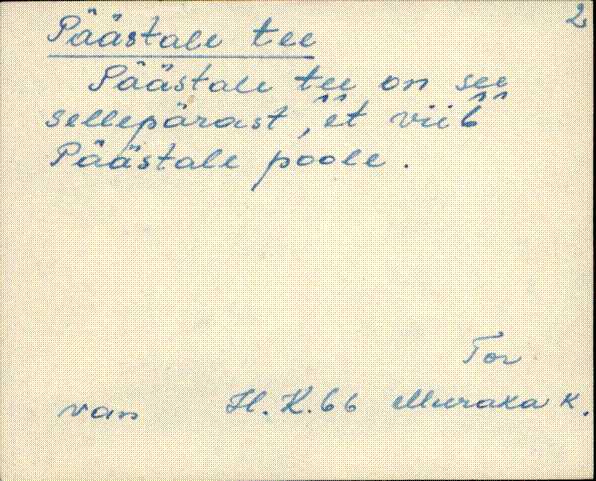 2
Päästale tee
Päästale tee on see
sellepärast, êt viîb̂
Päästale poole.
Tor
van H. K. 66 Muraka k.